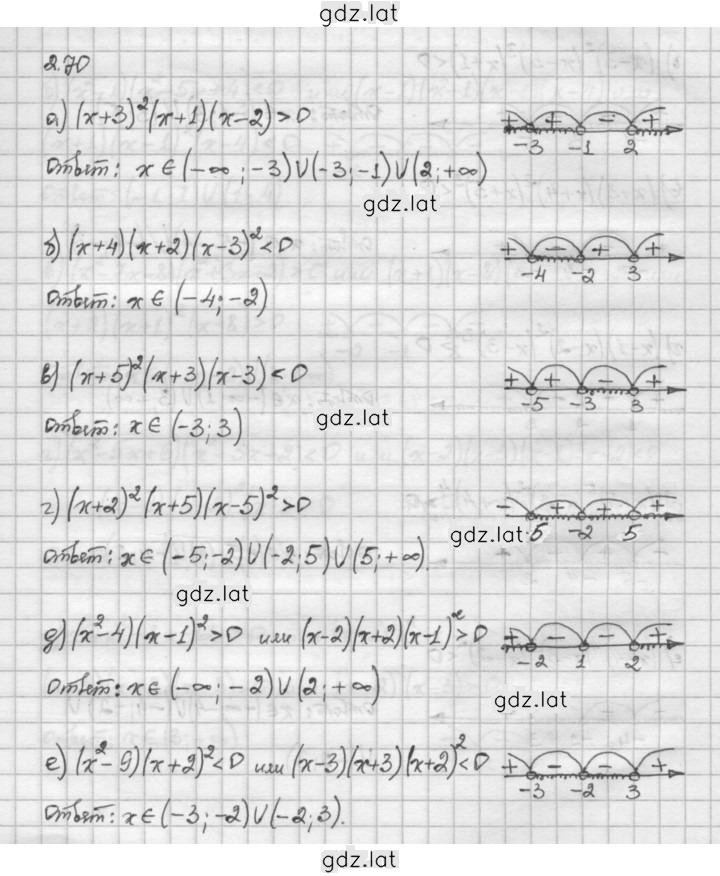 gdz.lat
2.70
а) (x+3)²(x+1)(x-2)>0
+ + - +
-3 -1 2
Ответ: x∈(-∞;-3)∪(-3;-1)∪(2;+∞)
gdz.lat
б) (x+4)(x+2)(x-3)²<0
+ - + +
-4 -2 3
Ответ: x∈(-4;-2)
в) (x+5)²(x+3)(x-3)<0
+ + - +
-5 -3 3
Ответ: x∈(-3;3)
gdz.lat
г) (x+2)²(x+5)(x-5)²>0
- + + +
-5 -2 5
gdz.lat
Ответ: x∈(-5;-2)∪(-2;5)∪(5;+∞).
gdz.lat
д) (x²-4)(x-1)²>0 или (x-2)(x+2)(x-1)²>0
+ - - +
-2 1 2
Ответ: x∈(-∞;-2)∪(2;+∞)
gdz.lat
е) (x²-9)(x+2)²<0 или (x-3)(x+3)(x+2)²<0
+ - - +
-3 -2 3
Ответ: x∈(-3;-2)∪(-2;3).
gdz.lat